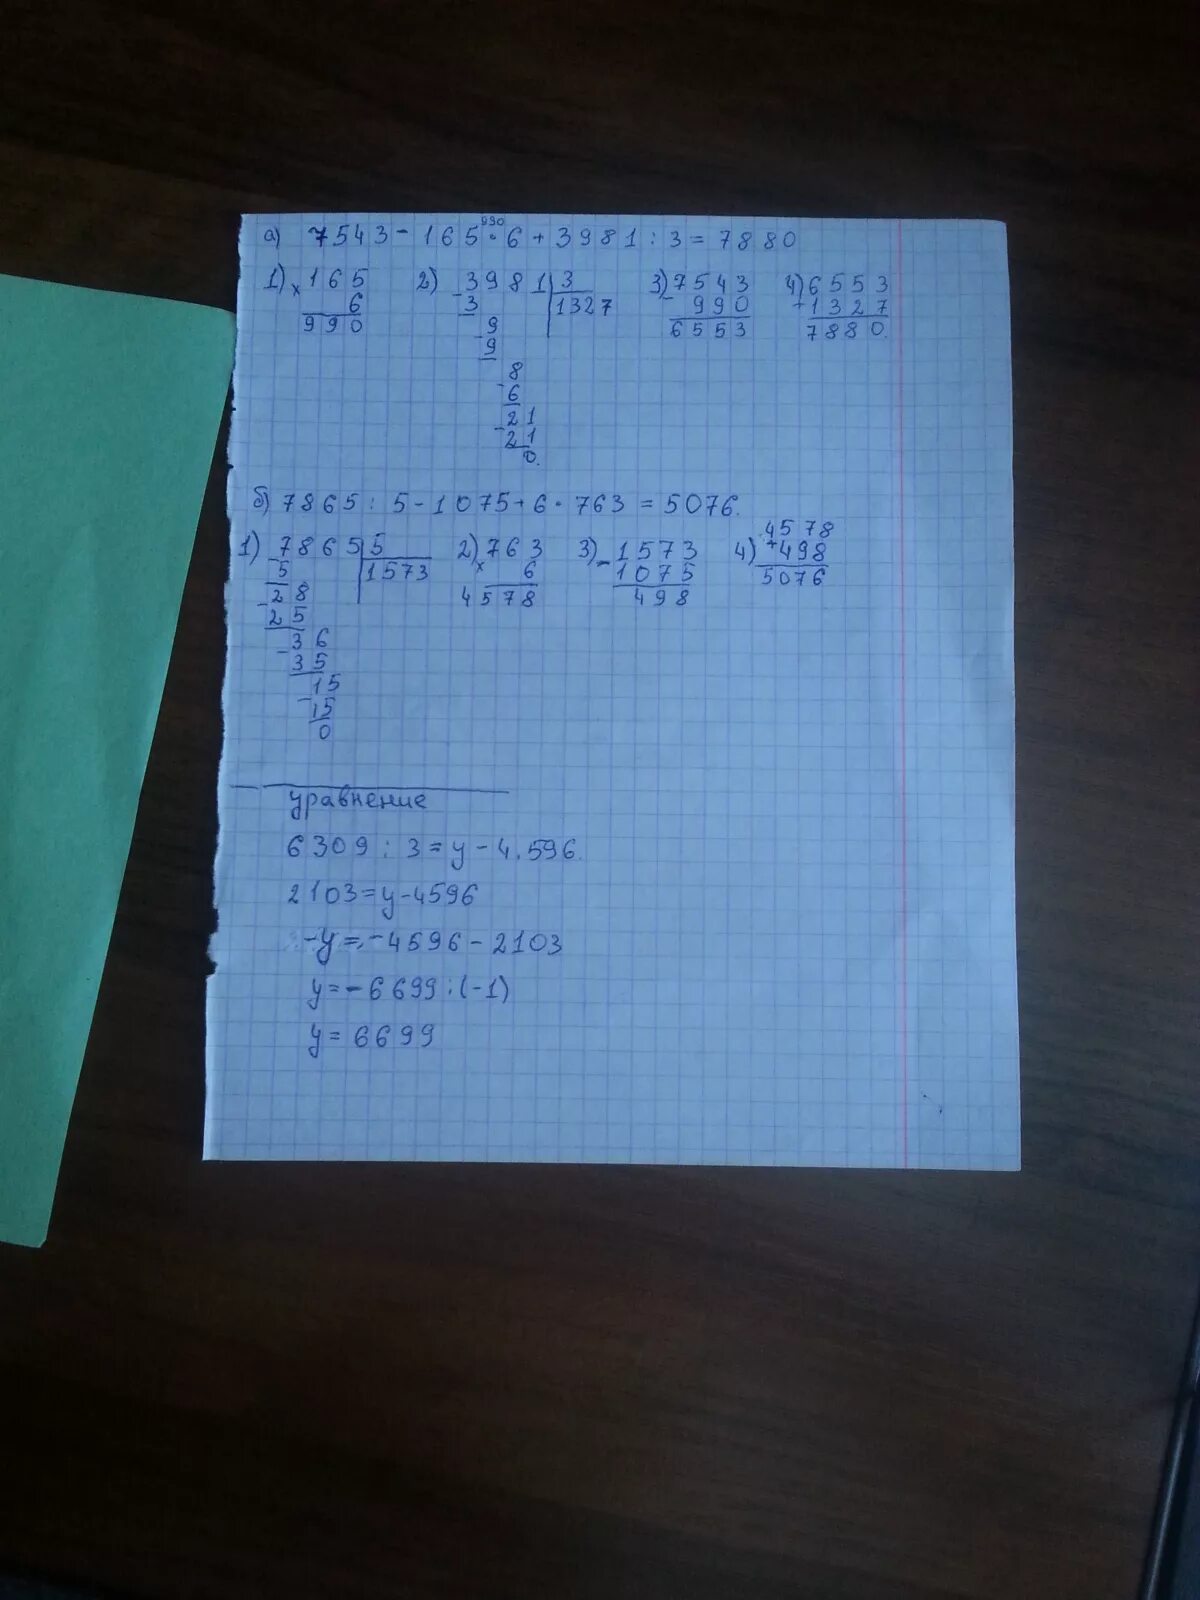 990
а) 7543 - 165 · 6 + 3981 : 3 = 7880
1) 165 2) 3981 | 3 3) 7543 4) 6553
× 6 - 3 1327 - 990 + 1327
990 6553 7880.
- 9
9
8
- 6
21
- 21
0.
б) 7865 : 5 - 1075 + 6 · 763 = 5076.
1) 7865 | 5 2) 763 3) - 1573 4) 4578
5 1573 × 6 1075 + 498
- 28 4578 498 5076
25
- 36
35
- 15
15
0
уравнение
6309 : 3 = y - 4.596.
2103 = y - 4596
- y = - 4596 - 2103
y = - 6699 : (-1)
y = 6699